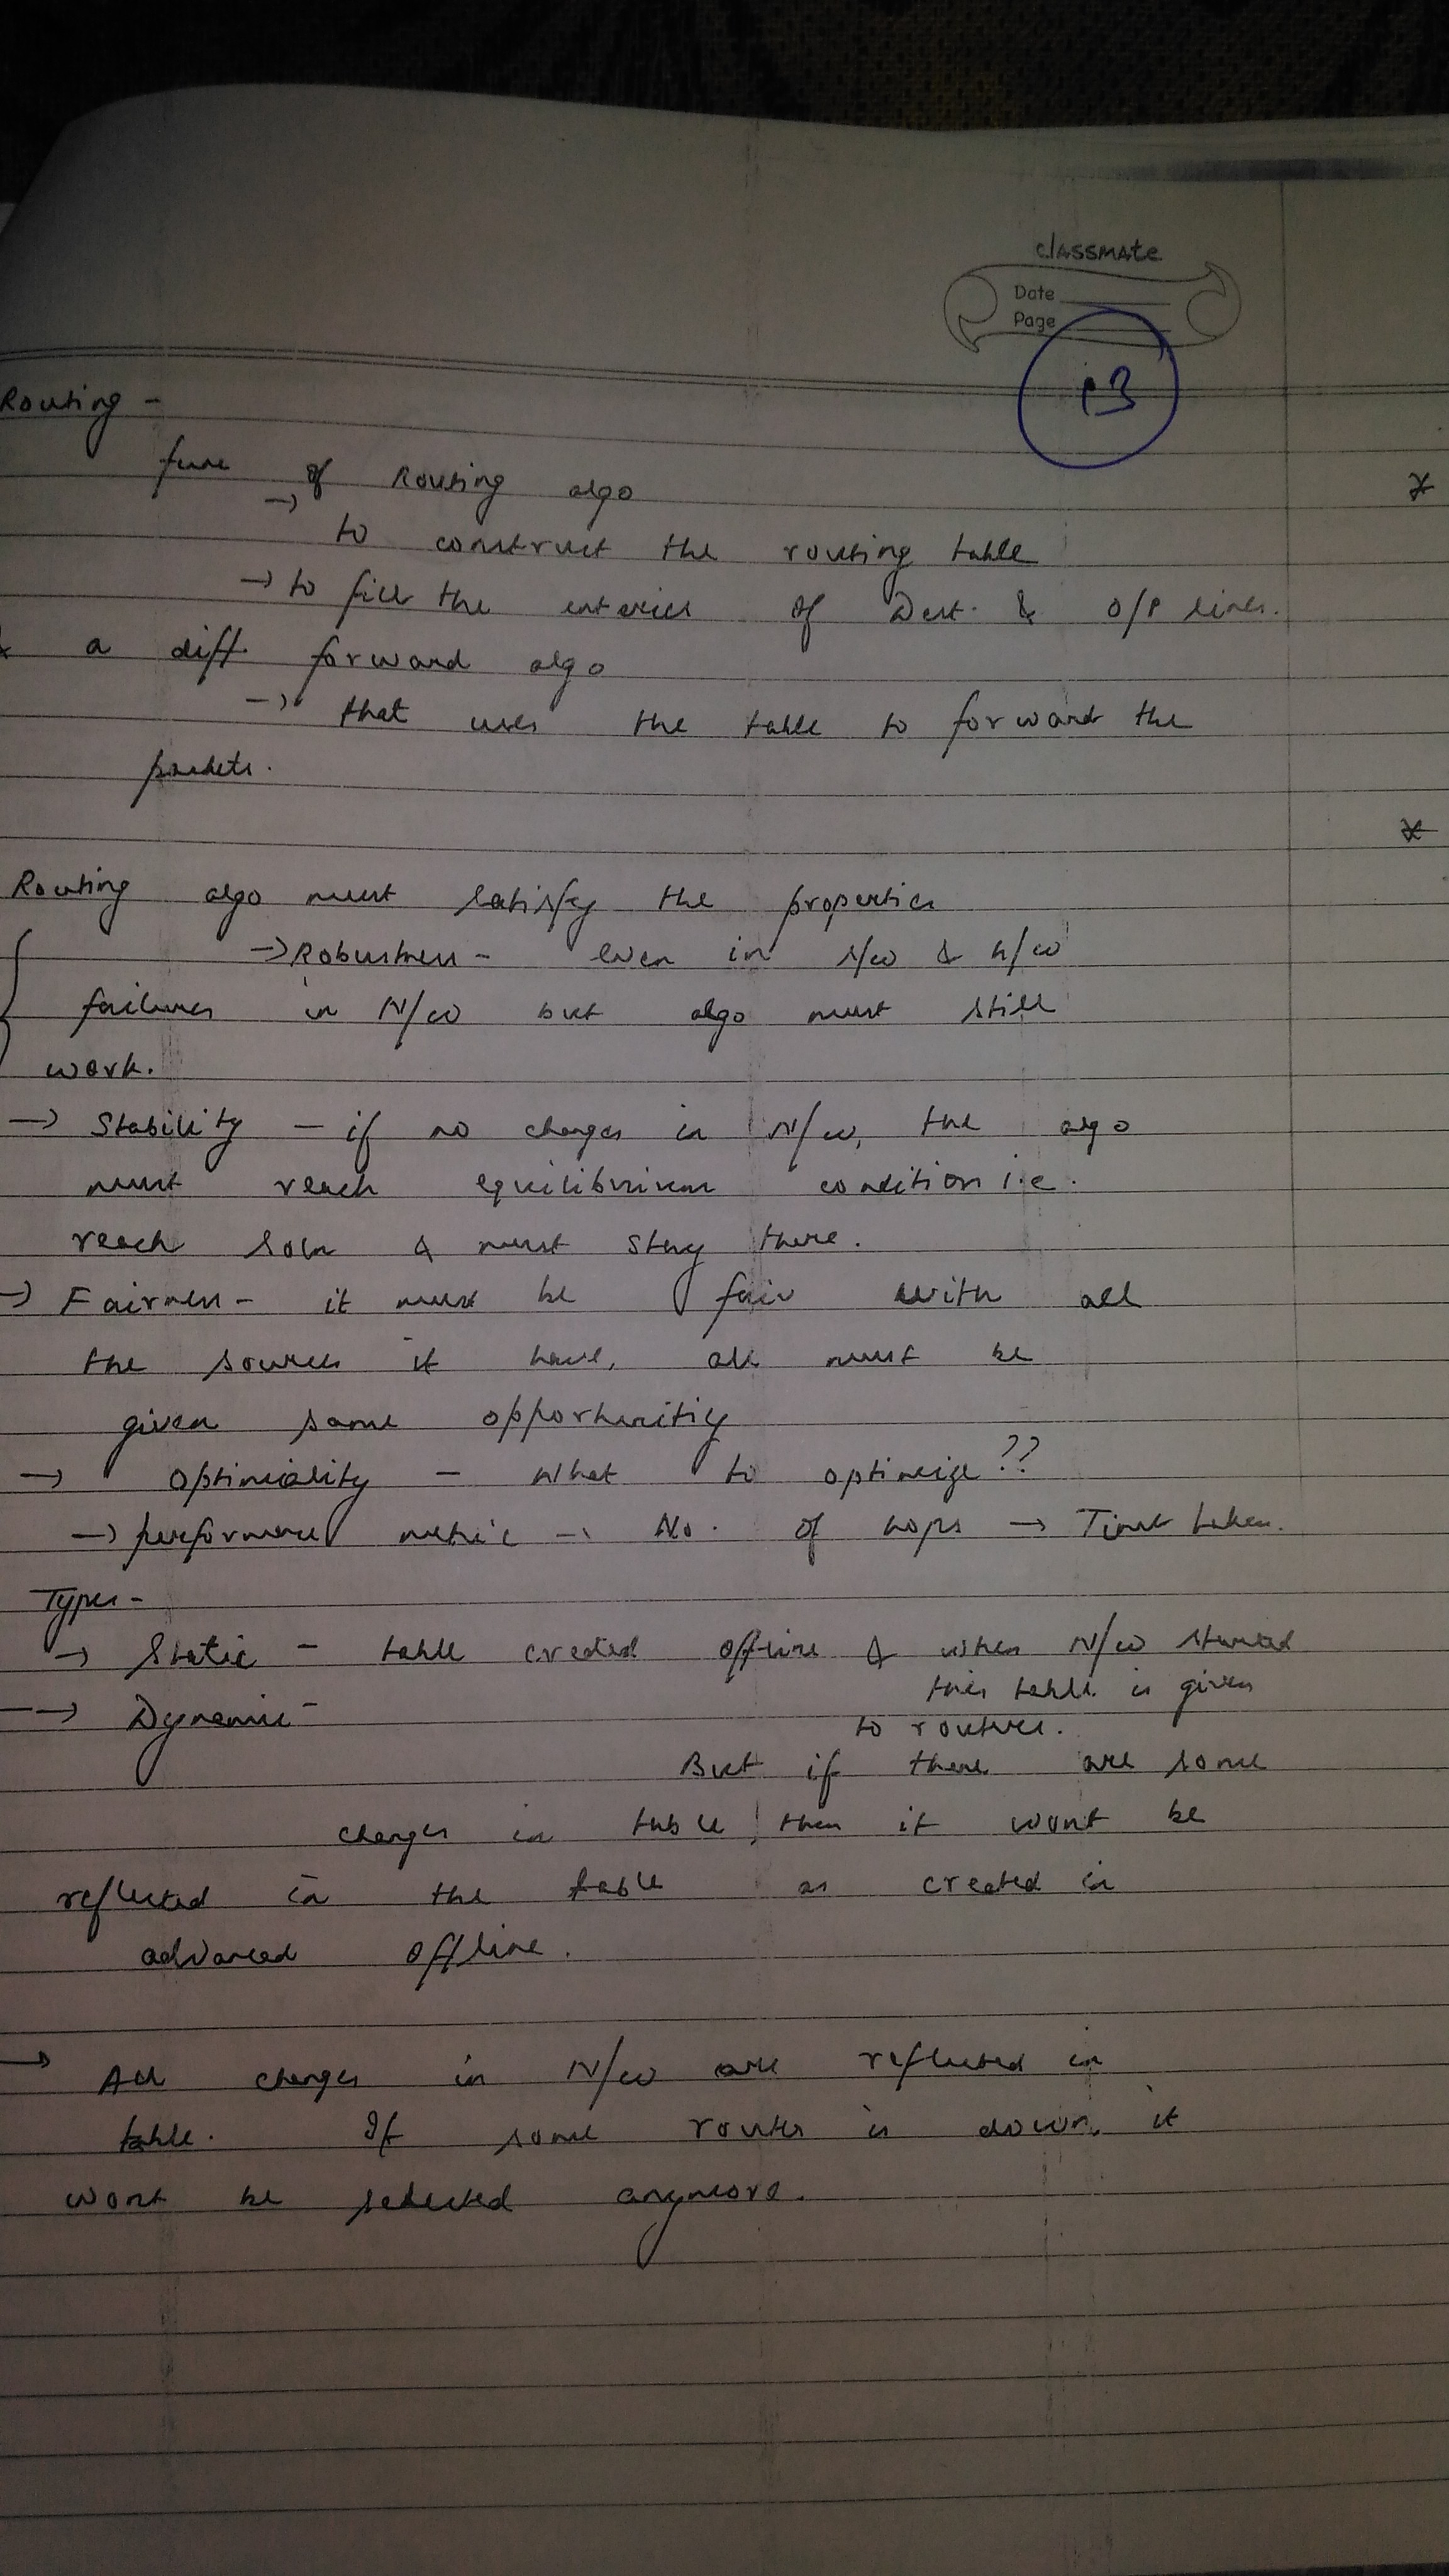 classmate
Date
Page
13
Routing -
func of Routing algo
→ to construct the routing table
→ to fill the enteries of Dest. & O/P lines.
& a diff. forward algo
→ that uses the table to forward the
packets.
Routing algo must satisfy the properties
→ Robustness - even in s/w & h/w
failures in N/w but algo must still
work.
→ Stability - if no changes in N/w, the algo
must reach equilibrium condition i.e.
reach soln & must stay there.
→ Fairness - it must be fair with all
the sources it have, all must be
given same
→ - What to optimize??
→ performance metric → No. of hops → taken.
Types -
→ Static - table created offline & when N/w started
this table is given
→ Dynamic -
to routers.
But if there are some
changes in table, then it wont be
reflected in the table as created in
advanced offline.
→ All changes in N/w are reflected in
table. If some router is down, it
wont be selected anymore.